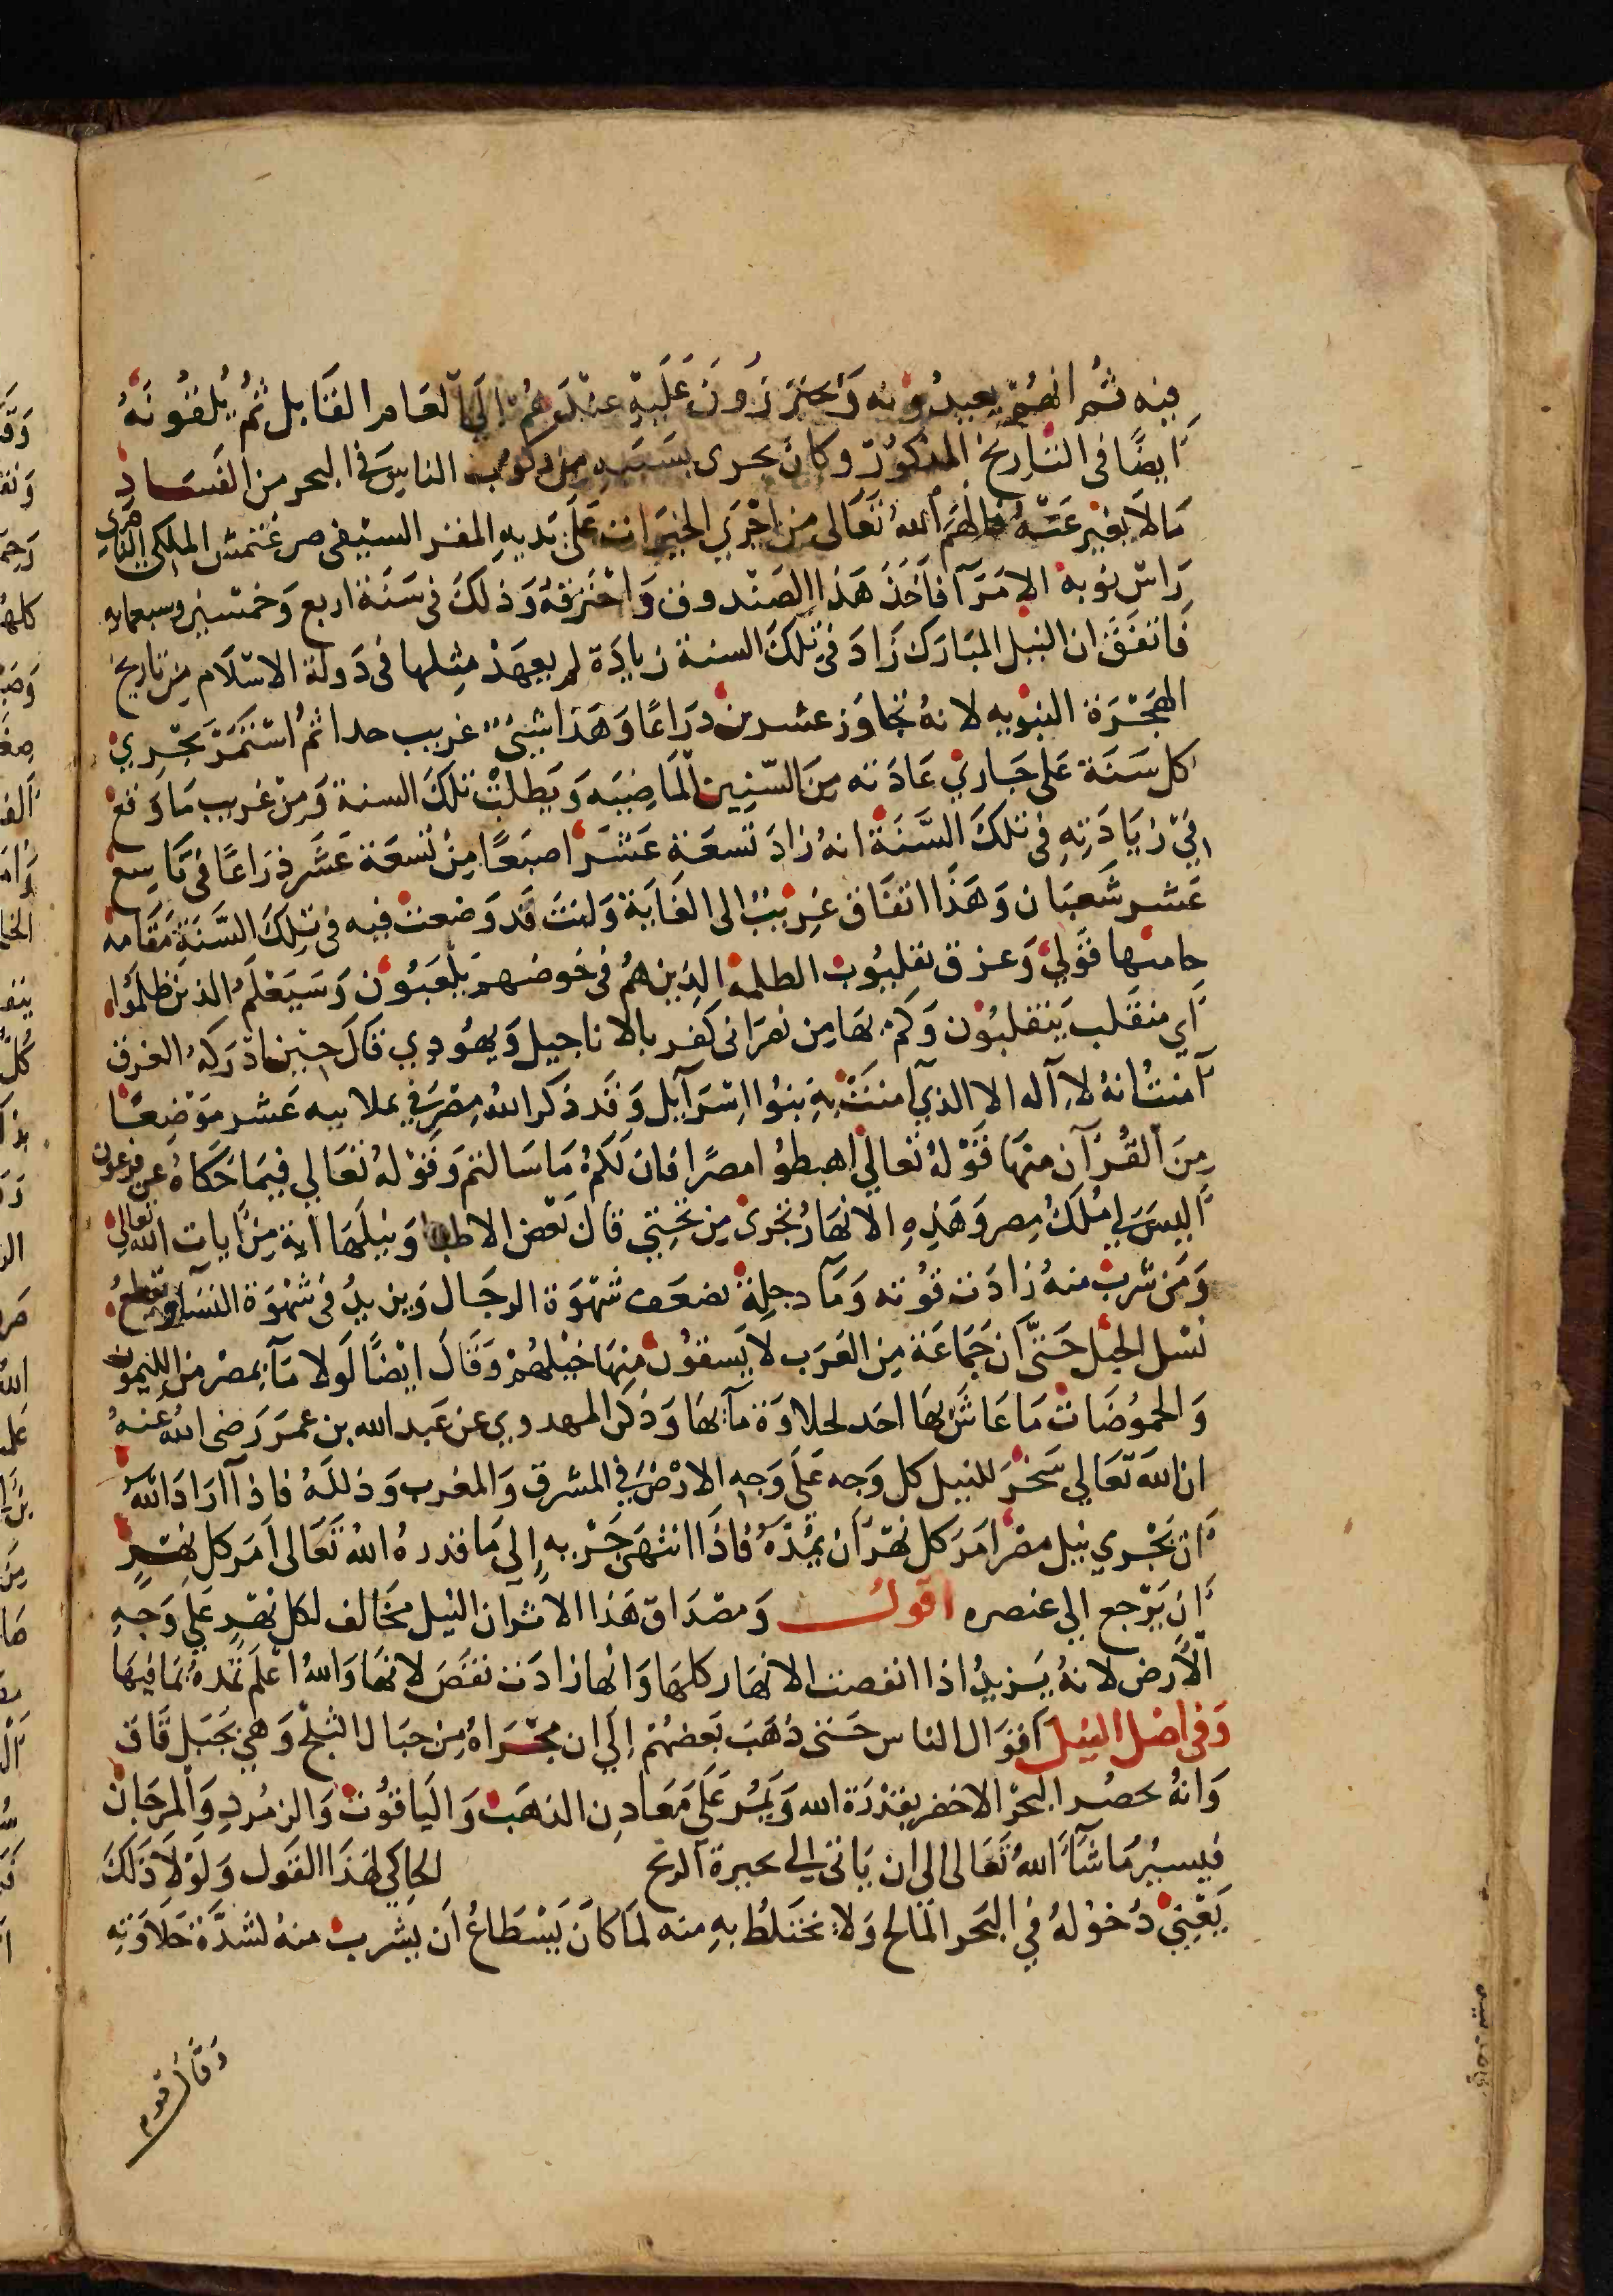 فيه ثم انهم يعيدونه ويحترزون عليه عندهم الى العام القابل ثم يلقونه
ايضا فى التاريخ المذكور وكان يجرى بسببه من ركوب الناس فى البحر من الفساد
ما لا يعبر عنه فالهم الله تعالى من اجرى الخيرات على يديه المقر السيفى صرغتمش الملكى الناصرى
راس نوبة الامرآ فاخذ هذا الصندوق واحترقه وذلك فى سنة اربع وخمسين وسبعمايه
فاتفق ان النيل المبارك زاد فى تلك السنة زيادة لم يعهد مثلها فى دولة الاسلام من تاريخ
الهجرة النبويه لانه تجاوز عشرين دراعا وهذا شىء غريب جدا ثم استمر يجري
كل سنة على جاري عادته من السنين الماضيه وبطلت تلك السنة ومن غريب ما وقع
في زيادته فى تلك السنة انه زاد تسعة عشر اصبعا من تسعة عشر ذراعا فى تاسع
عشر شعبان وهذا اتفاق غريب الى الغاية ولنت قد وضعت فيه فى تلك السنة مقامة
جا منها قولي وعزق بقليوب الظلمة الذين هم فى خوضهم يلعبون وسيعلم الذين ظلموا
اي منقلب ينقلبون وكم بها من نصرانى كفر بالاناجيل ويهودي قال حين ادركه الغرق
آمنت انه لا اله الا الذي آمنت به بنوا اسرآيل وقد ذكر الله مصر في عشر موضعا
من القرآن منها قوله تعالى اهبطوا مصرا فان لكم ما سالتم وقوله تعالي فيما حكاه عن فرعون
اليس لي ملك مصر وهذه الانهار تجرى من تحتي قال بعض الاطبا ونيلها اية من ايات الله تعالي
ومن شرب منه زادت قوته ومآ دجلة يضعف شهوة الرجال ويزيد فى شهوة النسآ ويقطع
نسل الخيل حتى ان جماعة من العرب لا يسقون منها خيلهم وقال ايضا لولا مآ بمصر من الليمون
والحموضات ما عاش بها احد لحلاوة مآ بها وذكر المهدوي عن عبد الله بن عمر رضى الله عنه
ان الله تعالي سخر للنيل كل وجه على وجه الارض في المشرق والمغرب وذلله فاذا اراد الله
ان يجري نيل مصر امر كل نهر ان يمده فاذا انتهى جريه إلى ما قدره الله تعالى امر كل نهر
ان يرجع الي عنصره اقول ومصداق هذا الاثر ان النيل مخالف لكل نهر على وجه
الأرض لانه يزيد اذا انقصت الانهار كلها وانها زادت نقص لانها والله اعلم تمده بما فيها
وفي اصل النيل اقوال الناس حتى ذهب بعضهم إلى ان مجراه من جبال الثلج وهي بجبل قاف
وانه يحصر البحر الاخضر بقدرة الله ويمر على معادن الذهب والياقوت والزمرد والمرجان
فيسير ما شآ الله تعالى الى ان ياتى الى بحيرة الزنج الحاكي لهذا القول ولولا ذلك
يعني دخوله في البحر المالح ولا يختلط به منه لما كان يسطاع ان يشرب منه لشدة حلاوته
وقال قوم